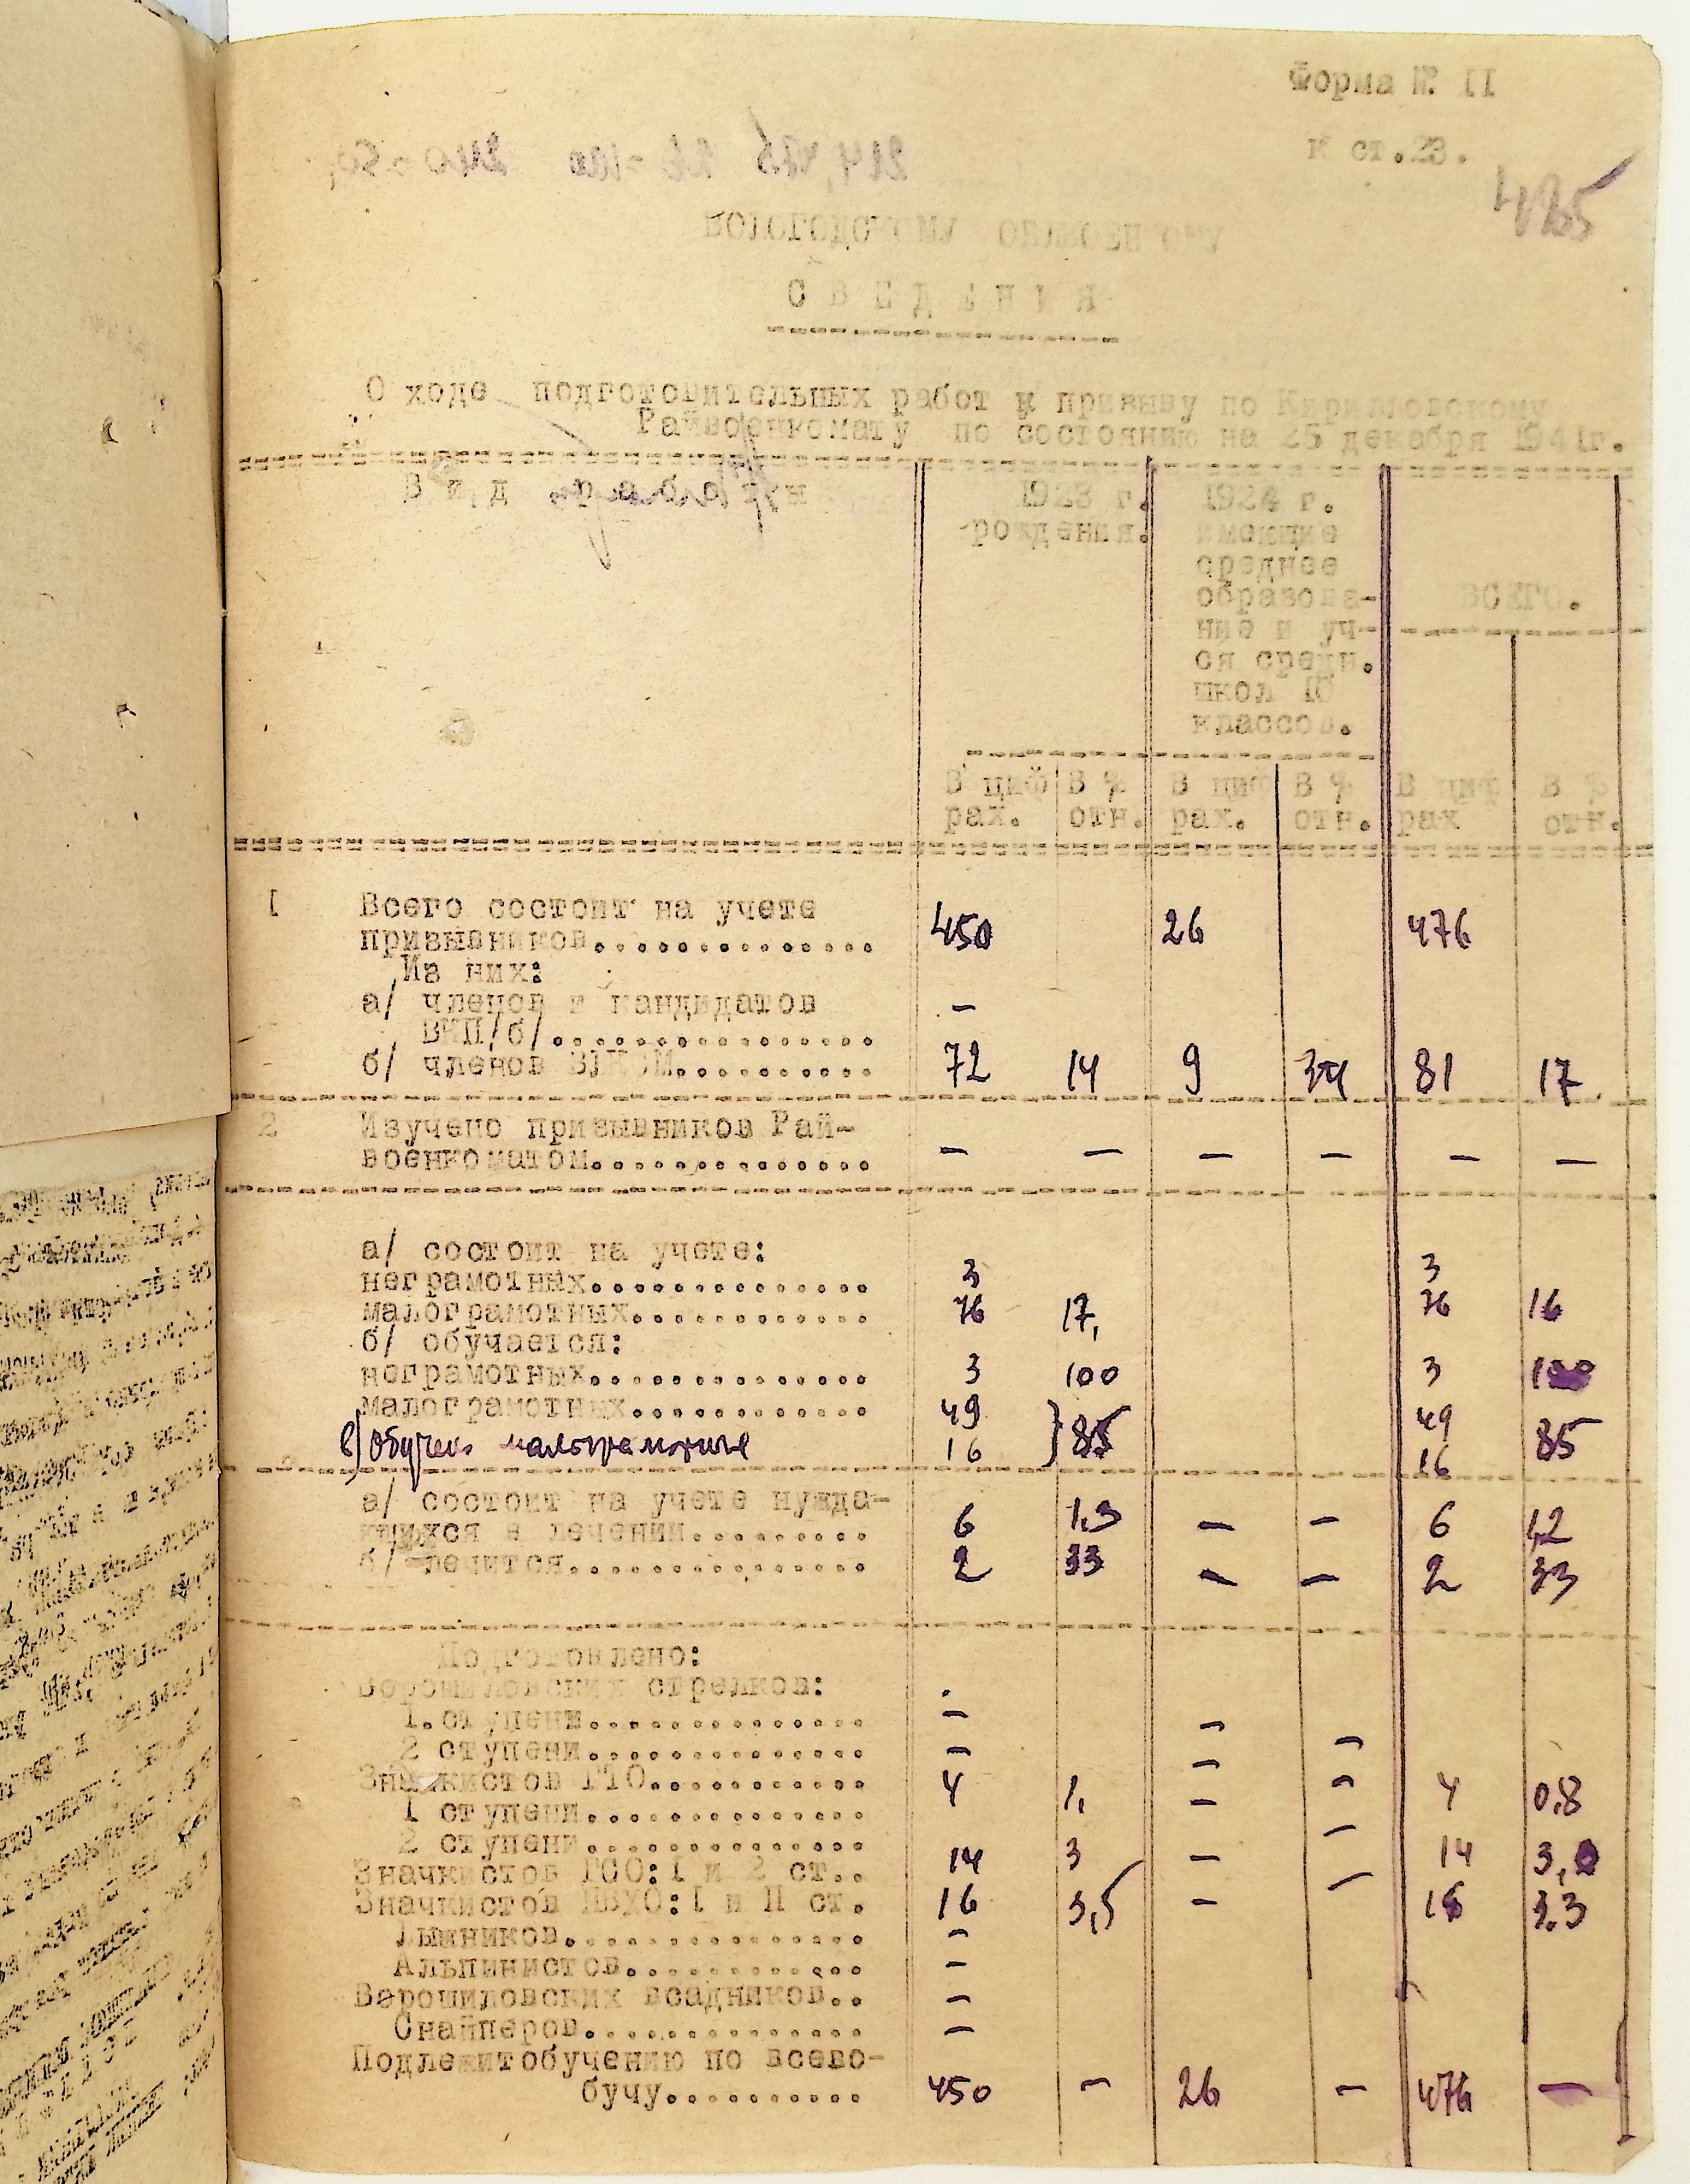 Форма № II
к ст.23.
485
ВОЛОГОДСКОМУ ОБЛВОЕНКОМУ
С В Е Д Е Н И Я
О ходе подготовительных работ к призыву по Кирилловскому
Райвоенкомату по состоянию на 25 декабря 1941г.
В и д р а б о т ы
1923 г. рождения.
1924 г.
имеющие
среднее
образова-
ние и уч-
ся средн.
школ 10
классов.
ВСЕГО.
В циф В % В циф В % В циф В %
рах. отн. рах. отн. рах отн.
I Всего состоит на учете
призывников............... 450 26 476
Из них:
а/ членов и кандидатов
ВКП/б/................ -
б/ членов ВЛКСМ........... 72 14 9 34 81 17
2 Изучено призывников Рай-
военкоматом.............. - - - - - -
а/ состоит на учете:
неграмотных.............. 3 3
малограмотных............ 76 17, 76 16
б/ обучается:
неграмотных.............. 3 100 3 100
малограмотных............ 49 } 85 49 85
в) Обучено малограмотные 16 16
а/ состоит на учете нужда-
ющихся в лечении......... 6 1,3 - - 6 1,2
б/ лечится............... 2 33 - - 2 33
Подготовлено:
Ворошиловских стрелков:
1.ступени.............. - - -
2 ступени.............. - - -
Значкистов ГТО........... 4 1, - - 4 0,8
I ступени..............
2 ступени..............
Значкистов ГСО:I и 2 ст.. 14 3 - - 14 3,0
Значкистов ПВХО:I и II ст. 16 3,5 - - 16 3.3
Лыжников............... -
Альпинистов............ -
Ворошиловских всадников.. -
Снайперов.............. -
Подлежит обучению по всево-
бучу.......... 450 - 26 - 476 -